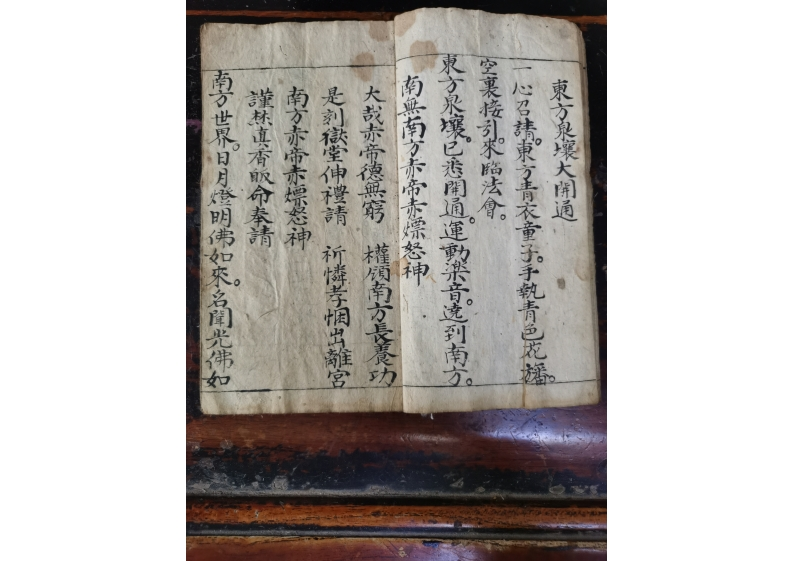 東方泉壤大開通
一心召請。東方青衣童子。手執青色花旛。
空裏接引。來臨法會。
東方泉壤。已悉開通。運動楽音。遶到南方。
南無南方赤帝赤熛怒神
大哉赤帝德無窮　權領南方長養功
是刻嶽堂伸禮請　祈憐孝悃出離宮
南方赤帝赤熛怒神
謹焚真香皈命奉請
南方世界。日月燈明佛如來。名聞光佛如